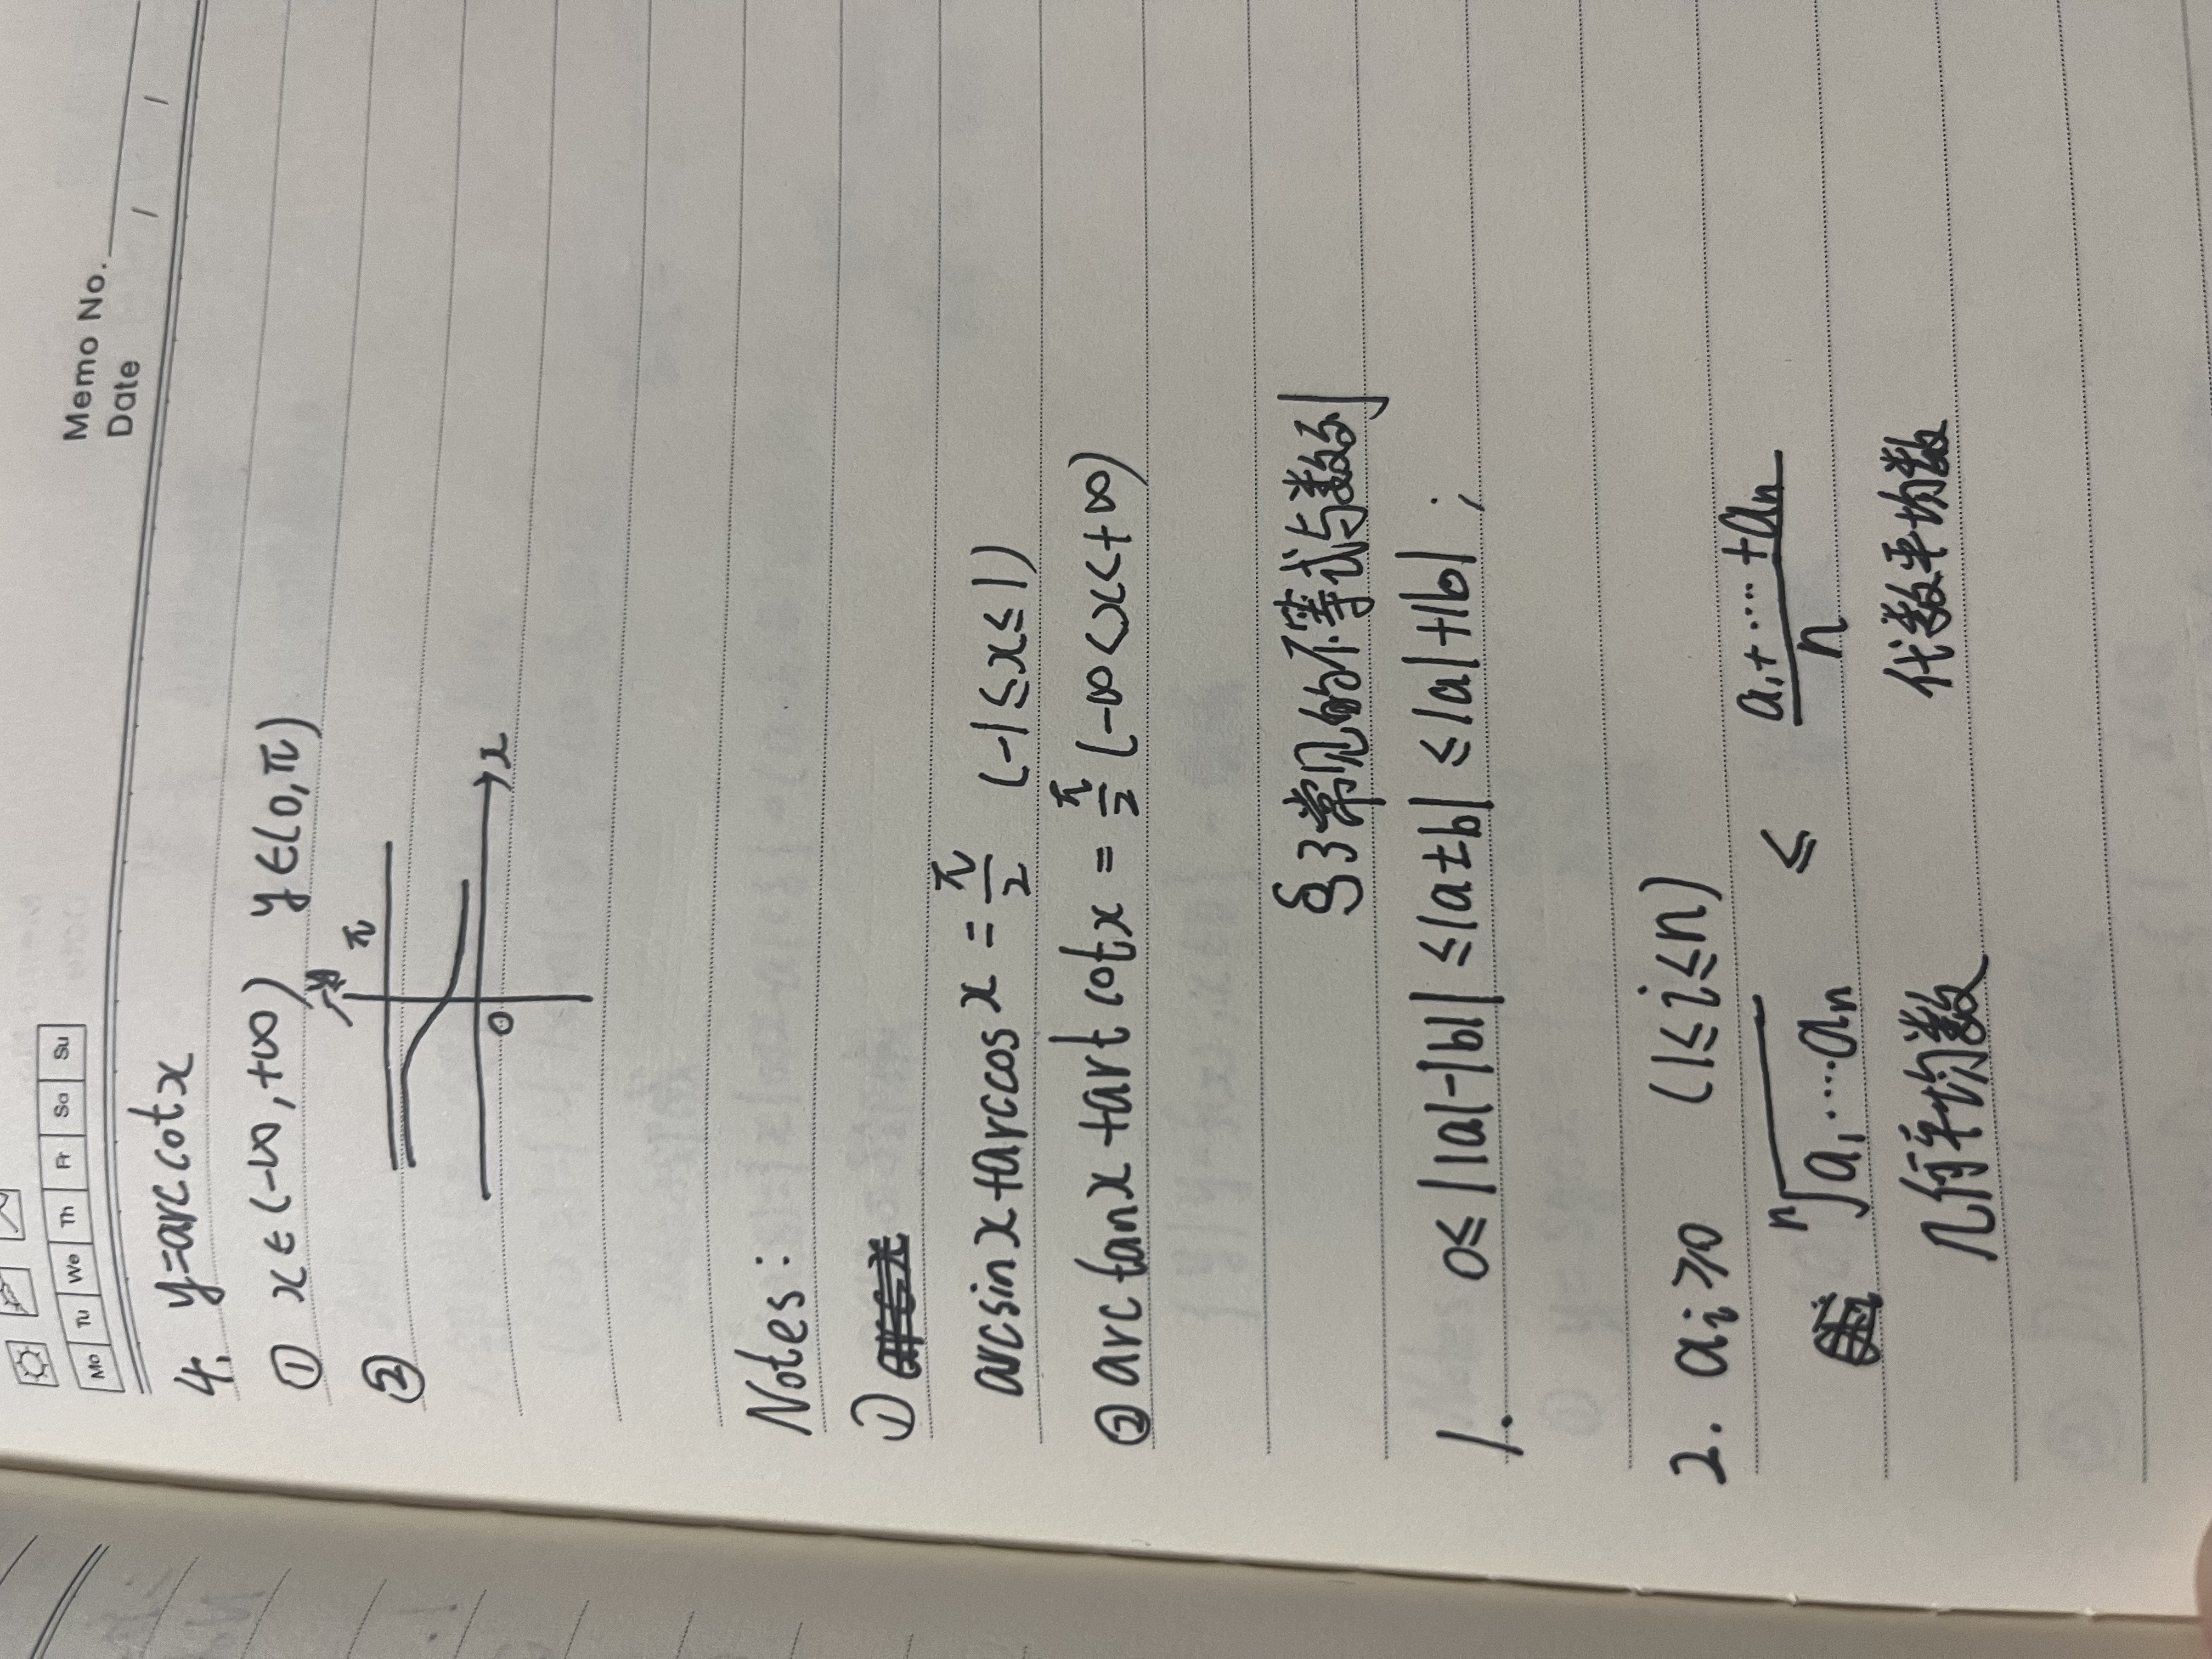 Memo No.
Date / /
Mo Tu We Th Fr Sa Su
4. y=arccotx
① x∈(-∞,+∞) y∈(0,π)
②
y
π
x
0
Notes:
①
arcsinx+arccosx=π/2 (-1≤x≤1)
②arctanx+artcotx=π/2(-∞<x<+∞)
§3常见的不等式与数列
1. 0≤||a|-|b||≤|a±b|≤|a|+|b|;
2. ai≥0 (1≤i≤n)
ⁿ√a₁…aₙ ≤ (a₁+…+aₙ)/n
几何平均数 代数平均数